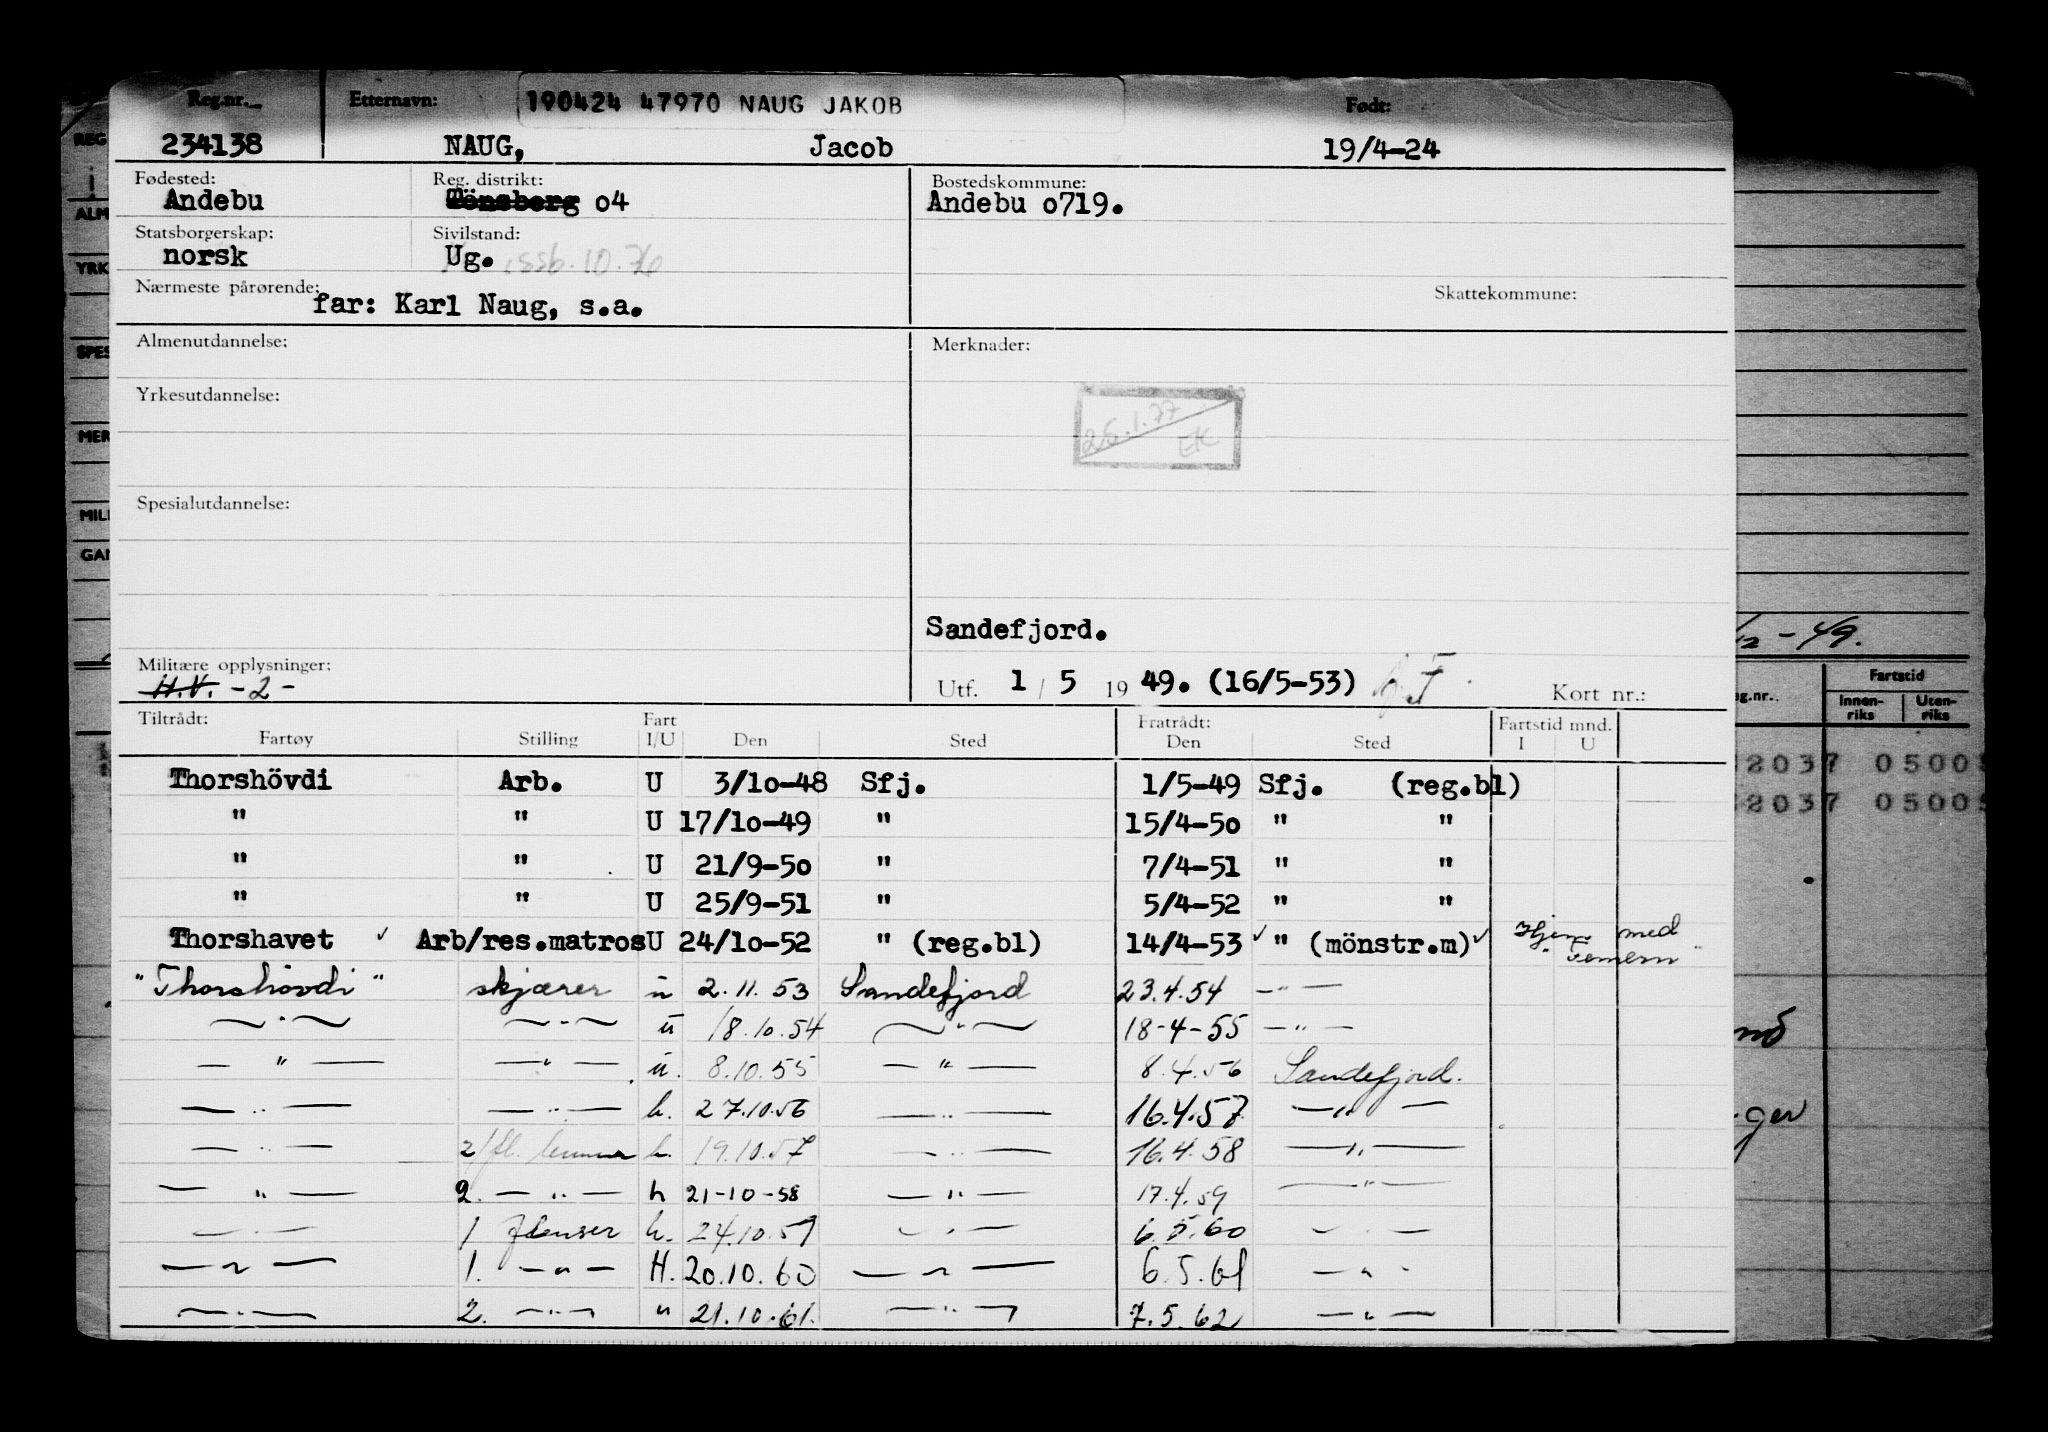 Reg.nr. Etternavn: 190424 47970 NAUG JAKOB Født:
234138 NAUG, Jacob 19/4-24
Fødested: Reg. distrikt: Bostedskommune:
Andebu Tönsberg o4 Andebu o719.
Statsborgerskap: Sivilstand:
norsk Ug. 10.76
Nærmeste pårørende: Skattekommune:
far: Karl Naug, s.a.
Almenutdannelse: Merknader:
Yrkesutdannelse:
26.1.77
EK
Spesialutdannelse:
Sandefjord.
Militære opplysninger:
H.V. -2-
Utf. 1 / 5 19 49. (16/5-53) Kort nr.:
Tiltrådt: Fart Fratrådt: Fartstid mnd.
Fartøy Stilling I/U Den Sted Den Sted I U
Thorshövdi Arb. U 3/10-48 Sfj. 1/5-49 Sfj. (reg.bl)
" " U 17/10-49 " 15/4-50 " "
" " U 21/9-50 " 7/4-51 " "
" " U 25/9-51 " 5/4-52 " "
Thorshavet ✓ Arb/res.matros U 24/10-52 " (reg.bl) 14/4-53 ✓ " (mönstr.m) ✓ Hjem med
Femern
"Thorshövdi" skjærer u 2.11.53 Sandefjord 23.4.54 — " —
— " — — " — u 18.10.54 — " — 18-4-55 — " —
— " — — " — u. 8.10.55 — " — 8.4.56 Sandefjord.
— " — — " — u. 27.10.56 — " — 16.4.57 — " —
— " — 2/fl. u. 19.10.57 — " — 16.4.58 — " —
— " — 2. — " — u 21-10-58 — " — 17.4.59 — " —
— " — 1 flenser u. 24.10.59 — " — 6.5.60 — " —
— " — 1. — " — U. 20.10.60 — " — 6.5.61 — " —
— " — 2. — " — u 21.10.61. — " — 7.5.62 — " —
REG
ALM
YRK
SPES
MER
MILI
GAN
-49.
g.nr. Fartstid
Innen-
riks
Uten-
riks
2037 0500
2037 0500